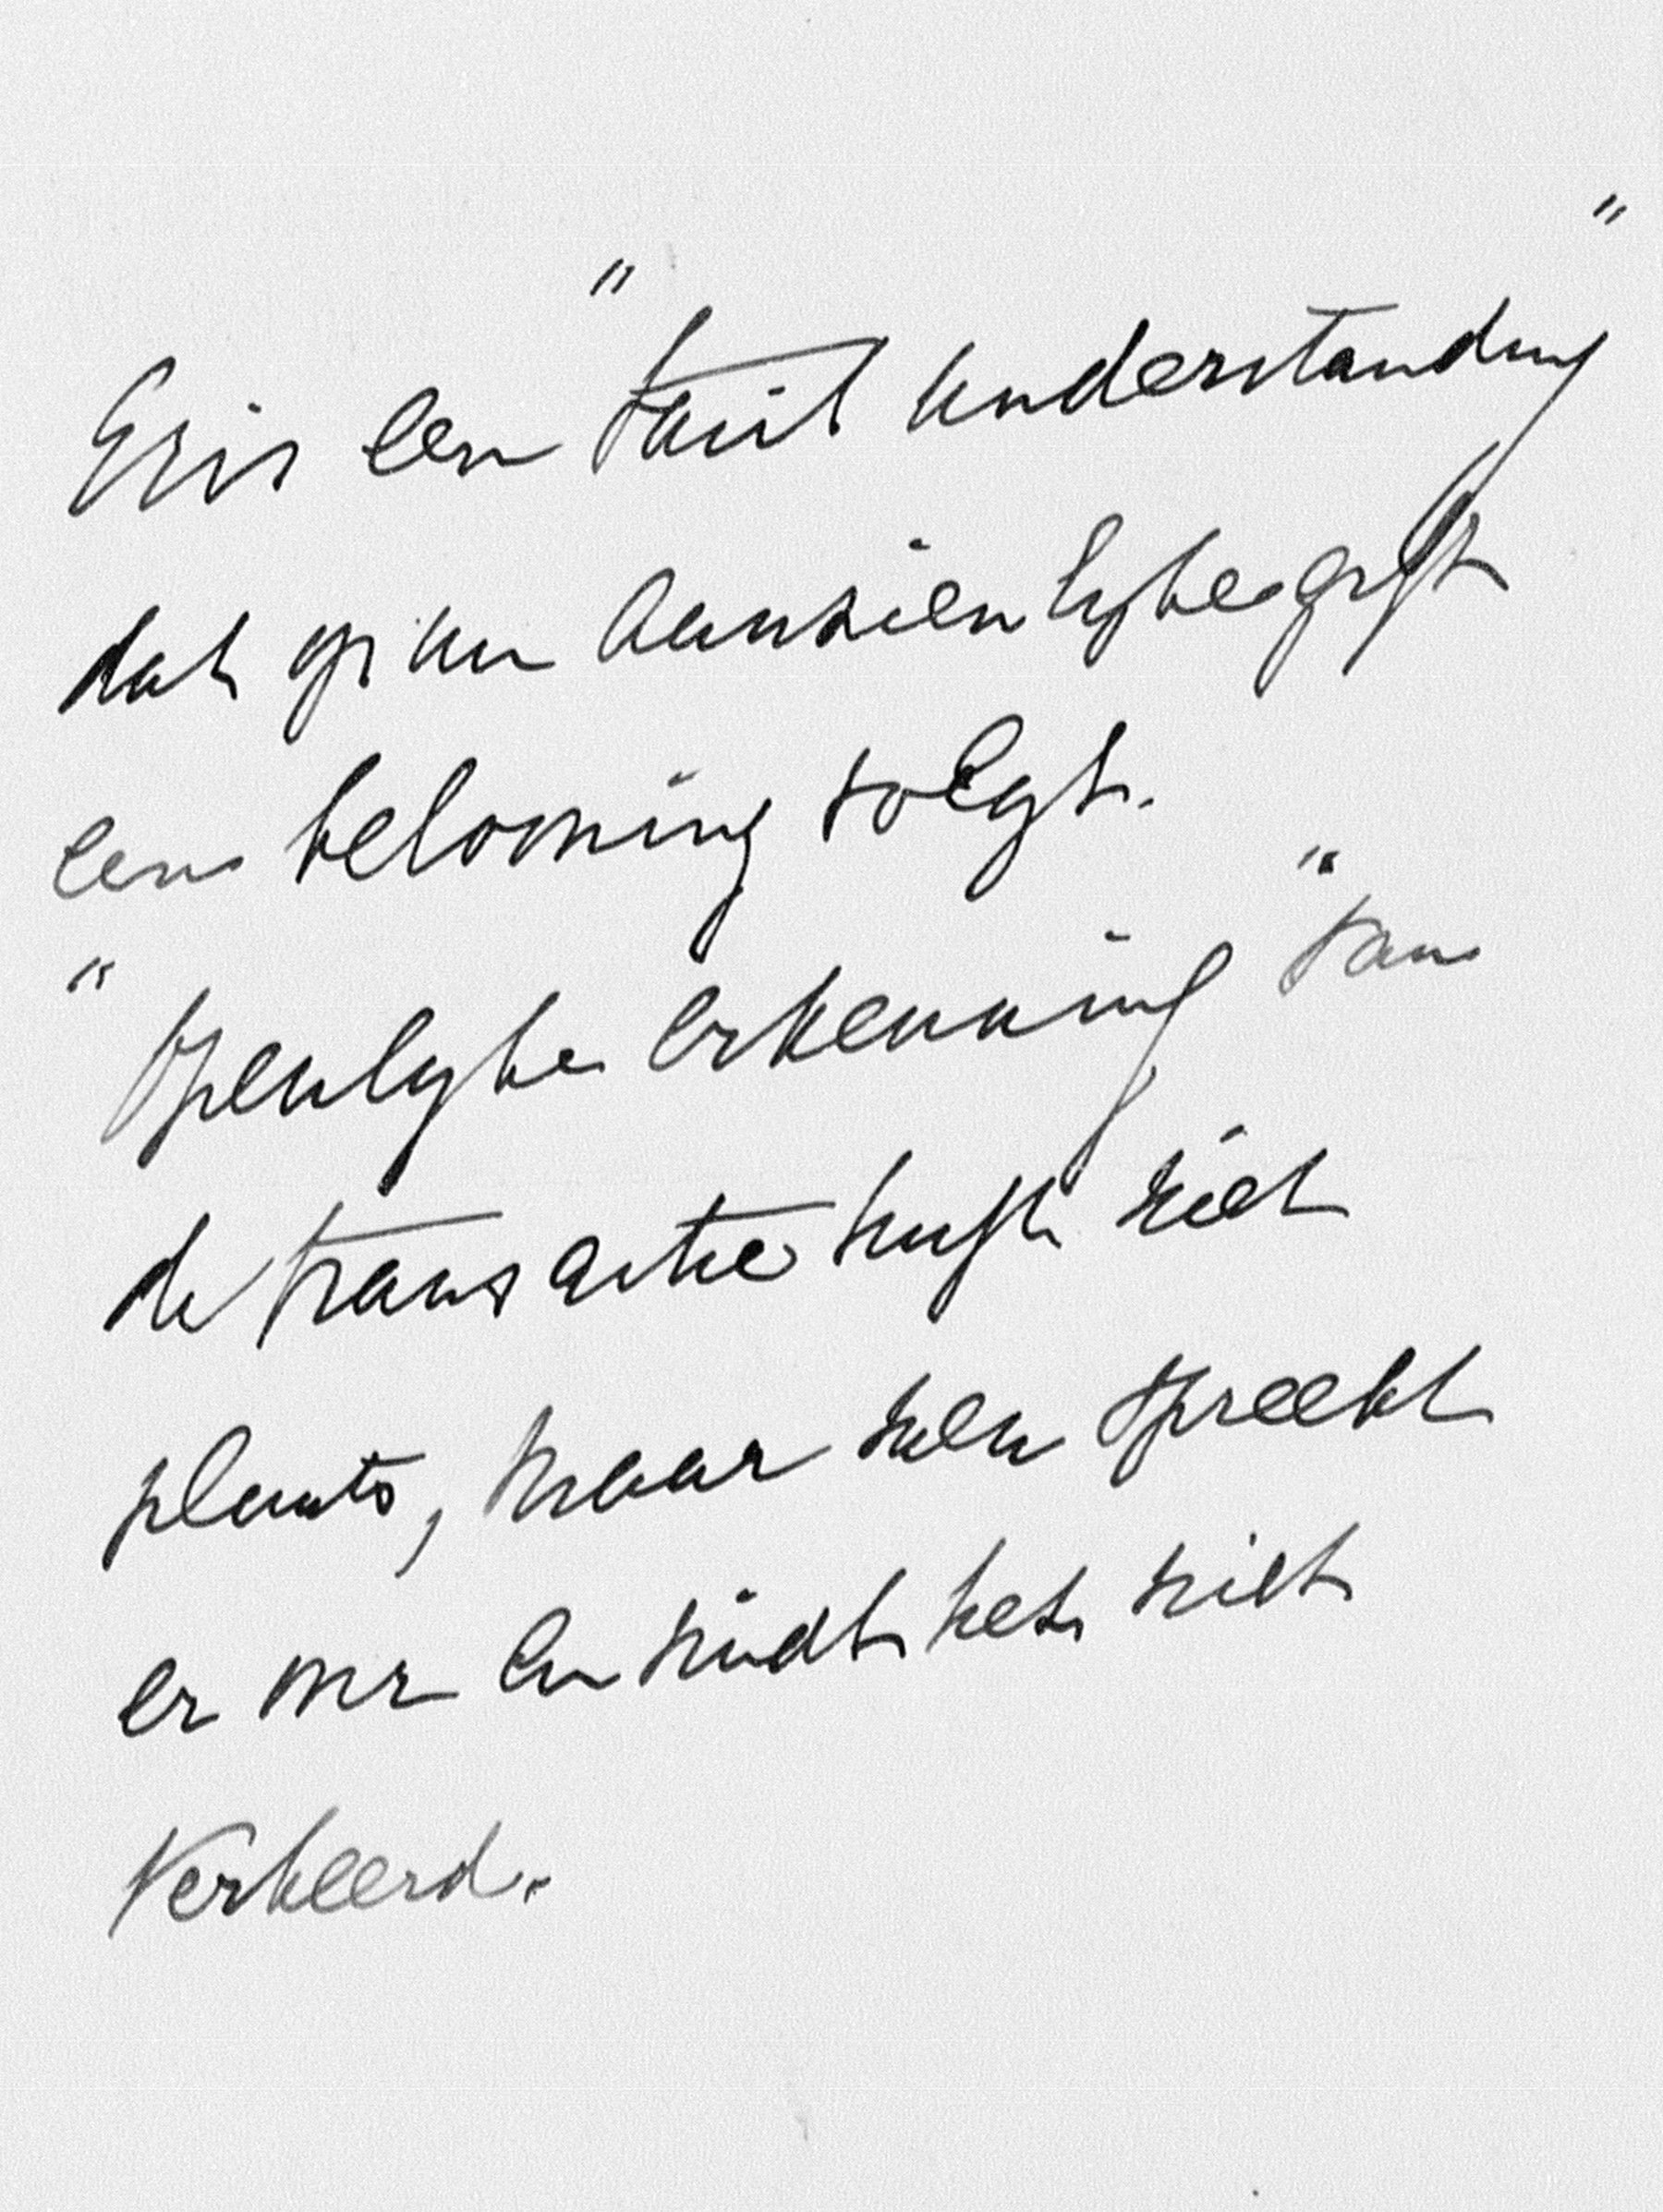 Er is een "tacit understanding"
dat op een aanzienlyke gift
een beloning volgt.
"Openlyke erkenning" van
de transactie heeft niet
plaats, maar men spreekt
er over en vindt het niet
Verkeerd.